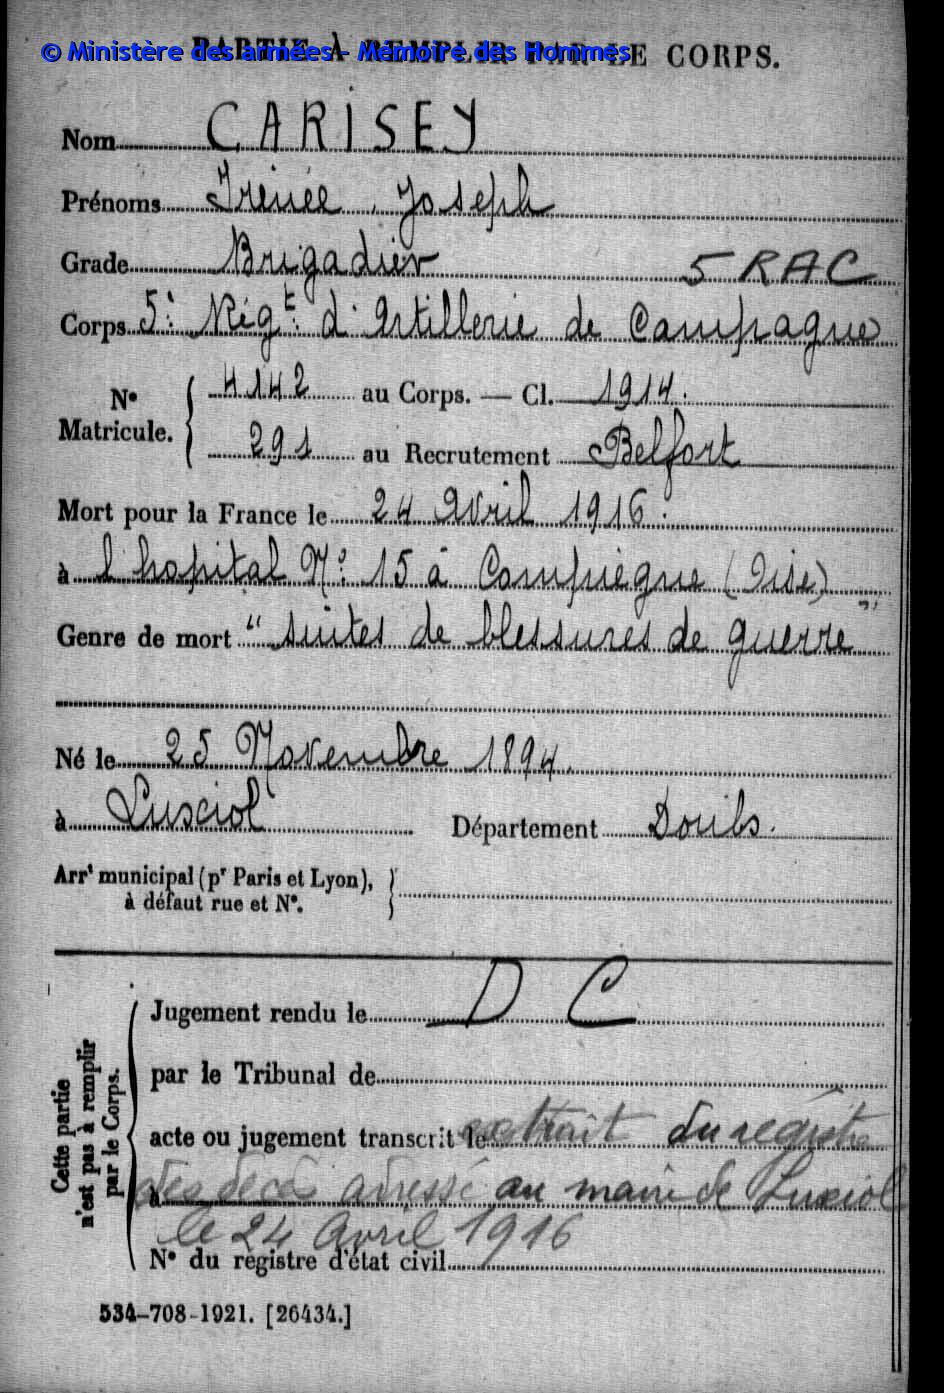 PARTIE À REMPLIR PAR LE CORPS.
© Ministère des armées - Mémoire des Hommes
Nom CARISEY
Prénoms Irénée, Joseph
Grade Brigadier 5 RAC
Corps 5e Régt d'Artillerie de Campagne
No Matricule. { 4142 au Corps. — Cl. 1914.
291 au Recrutement Belfort
Mort pour la France le 24 Avril 1916.
à l'hopital No 15 à Compiègne (Oise)
Genre de mort "suites de blessures de guerre"
Né le 25 Novembre 1894.
à Lusciol Département Doubs.
Arrt municipal (pr Paris et Lyon), }
à défaut rue et No. }
Cette partie n'est pas à remplir par le Corps.
Jugement rendu le D C
par le Tribunal de
acte ou jugement transcrit le extrait du registre
à des décès adressé au maire de Luxiol
le 24 Avril 1916
No du registre d'état civil
534-708-1921. [26434.]